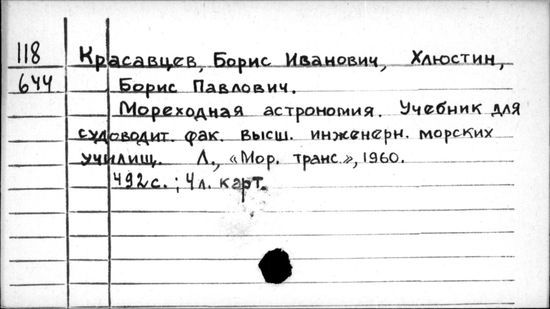 118
644
Красавцев, Борис Иванович, Хлюстин,
Борис Павлович.
Мореходная астрономия. Учебник для
судоводит. фак. высш. инженерн. морских
училищ. Л., «Мор. транс.», 1960.
492с.; 4л. карт.